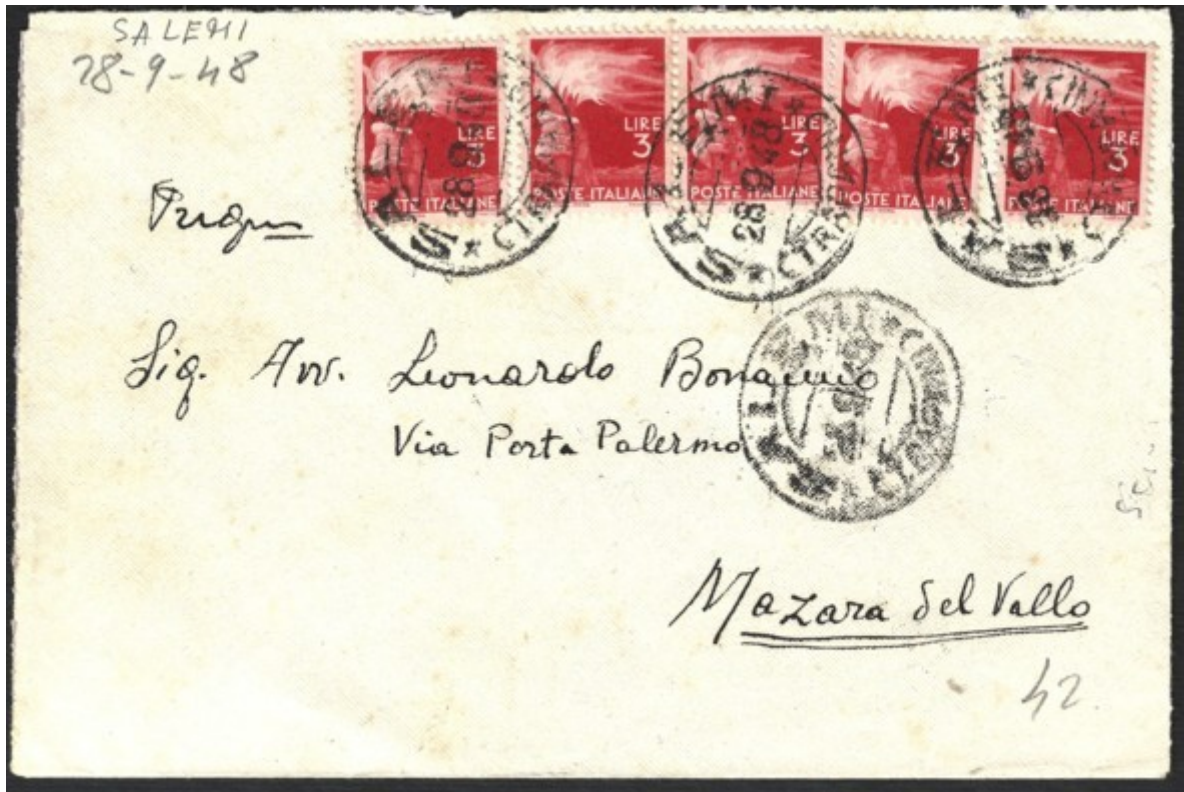 SALEMI
28-9-48
LIRE 3 POSTE ITALIANE
LIRE 3 POSTE ITALIANE
LIRE 3 POSTE ITALIANE
LIRE 3 POSTE ITALIANE
LIRE 3 POSTE ITALIANE
SALEMI
28.9.48
SALEMI * (TRAPANI) *
28.9.48
SALEMI
28.9.48
Sig. Avv. Leonardo Bonanno
SALEMI
Via Porta Palermo
Mazara del Vallo
42